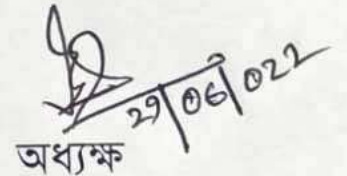 29/06/022
অধ্যক্ষ